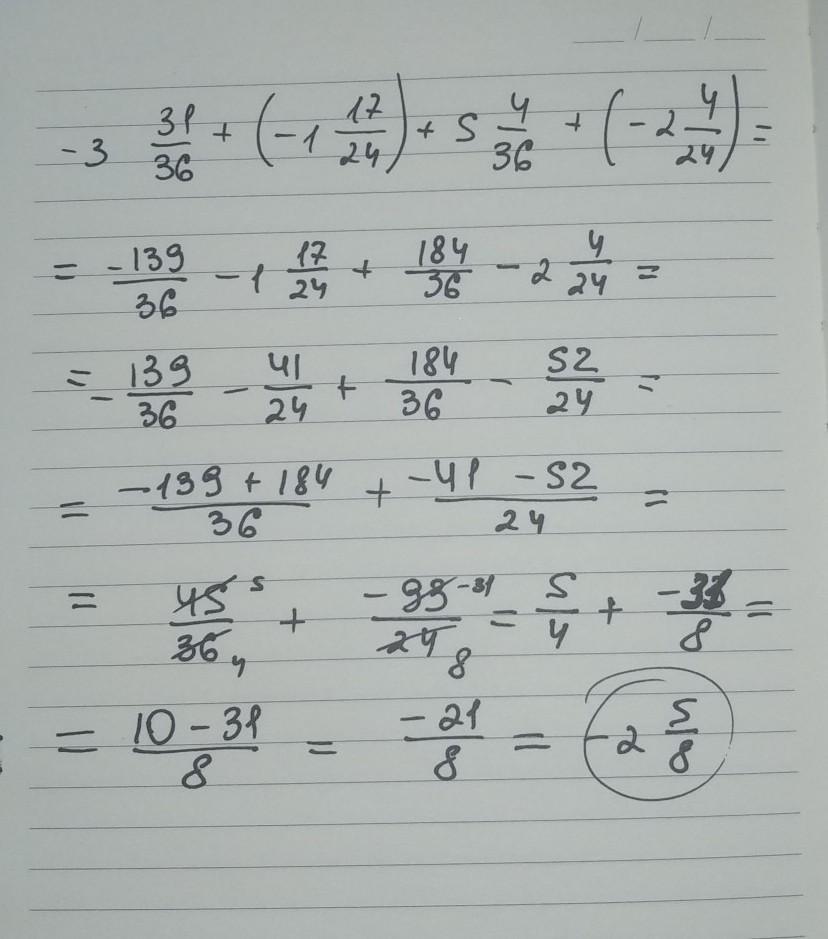 -3 31/36 + (-1 17/24) + 5 4/36 + (-2 4/24) =
= -139/36 - 1 17/24 + 184/36 - 2 4/24 =
= - 139/36 - 41/24 + 184/36 - 52/24 =
= (-139 + 184)/36 + (-41 - 52)/24 =
= 45 5/36 4 + -93 -31/24 8 = 5/4 + -31/8 =
= (10 - 31)/8 = -21/8 = -2 5/8